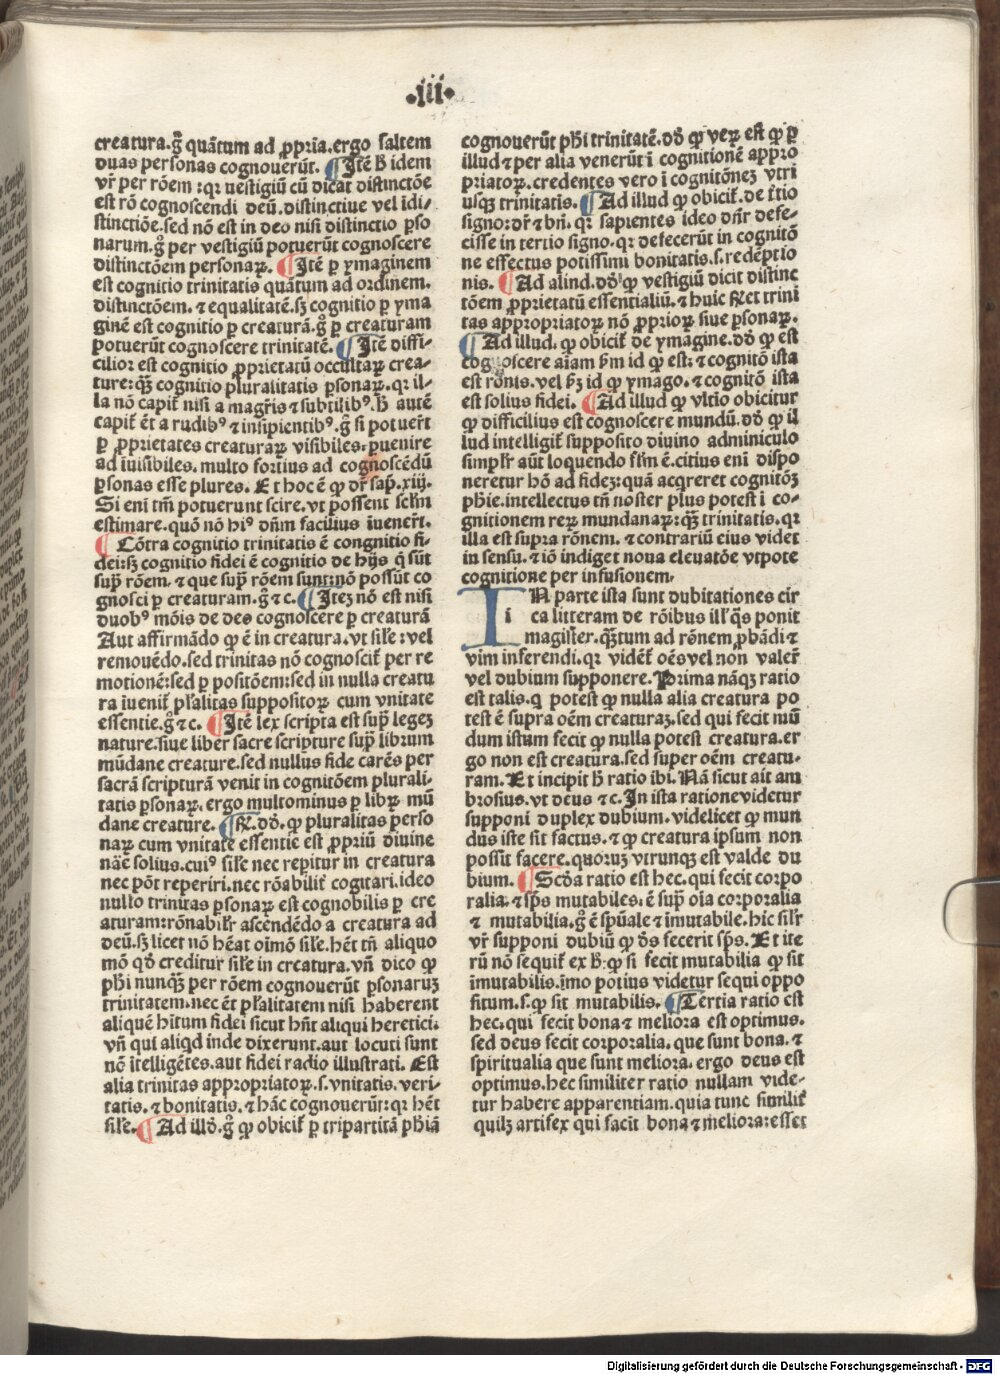 .iii.
creatura.gͦ quãtum ad ꝓpria.ergo saltem
duas personas cognouerũt. ¶ Itẽ ħ idem
vr̃ per rõem : qꝛ uestigiũ cũ dicat distinctõe
est rõ cognoscendi deũ.distinctiue vel idi-
stinctiõe.sed nõ est in deo nisi distinctio ꝑso
narum.gͦ per vestigiũ potuerũt cognoscere
distinctõem personaꝝ. ¶ Itẽ ꝑ ymaginem
est cognitio trinitatis quãtum ad ordinem.
distinctõem.⁊ equalitatẽ.sꝫ cognitio ꝑ yma
ginẽ est cognitio ꝑ creaturã.gͦ ꝑ creaturam
potuerũt cognoscere trinitatẽ. ¶ Itẽ diffi-
cilior est cognitio ꝓprietatũ occultaꝝ crea-
ture:qã cognitio pluralitatis ꝑsonaꝝ.qꝛ il-
la nõ capit̃ nisi a magr̃is ⁊ subtilibꝰ.ħ autẽ
capit̃ ẽt a rudibꝰ ⁊ insipientibꝰ.gͦ si potuer̃t
ꝑ ꝓprietates creaturaꝝ visibiles.puenire
ad ĩuisibiles.multo fortius ad cognoscẽdũ
ꝑsonas esse plures. Et hoc ẽ ꝙ dr̃ sap̃.xiij.
Si eni tm̃ potuerunt scire.vt possent sclm̃
estimare.quõ nõ hiꝰ dñm facilius ĩuener̃t.
¶ Cõtra cognitio trinitatis ẽ congnitio fi-
dei:sꝫ cognitio fidei ẽ cognitio de hijs q̃ sũt
supͣ rõem.⁊ que supͣ rõem sunt:nõ possũt co
gnosci ꝑ creaturam.gͦ ⁊ c. ¶ Iteꝫ nõ est nisi
duobꝰ mõis de deo cognoscere ꝑ creaturã
Aut affirmãdo ꝙ ẽ in creatura.vt sil̃e : vel
remouẽdo.sed trinitas nõ cognoscit̃ per re
motionẽ:sed ꝑ positõem:sed in nulla creatu
ra ĩuenit̃ pl̃alitas suppositoꝝ cum vnitate
essentie.gͦ ⁊ c. ¶ Itẽ lex scripta est supͣ legeꝫ
nature.siue liber sacre scripture supͣ librum
mũdane creature.sed nullus fide carẽs per
sacrã scripturã venit in cognitõem plurali-
tatis ꝑsonaꝝ.ergo multominus ꝑ libꝝ mũ
dane creature. ¶ R̃.dõ. ꝙ pluralitas perso
naꝝ cum vnitate essentie est ꝓpriũ diuine
nãe solius.cuiꝰ sil̃e nec reꝑitur in creatura
nec põt reperiri.nec rõabilit̃ cogitari.ideo
nullo trinitas ꝑsonaꝝ est cognobilis ꝑ cre
aturam:rõnabilr̃ ascendẽdo a creatura ad
deũ.sꝫ licet nõ hẽat oĩmõ sil̃e.hẽt tñ aliquo
mõ qđ creditur sil̃e in creatura.vñ dico ꝙ
pħi nunqꝫ per rõem cognouerũt personaꝝ
trinitatem.nec ẽt pl̃alitatem nisi haberent
aliquẽ hĩtum fidei sicut hñt aliqui heretici.
vñ qui aliqd inde dixerunt.aut locuti sunt
nõ ĩtelligẽtes.aut fidei radio illustrati. Est
alia trinitas appropriatoꝝ.s.vnitatis.veri-
tatis.⁊ bonitatis.⁊ hãc cognouerũt:qꝛ hẽt
sil̃e. ¶ Ad illđ.gͦ ꝙ obicit̃ ꝑ tripartitã pħiã
cognouerũt pħi trinitatẽ.dõ ꝙ veꝝ est ꝙ ꝑ
illud ⁊ per alia venerũt ĩ cognitionẽ appro
priatoꝝ.credentes vero ĩ cognitõneꝫ vtri
usqꝫ trinitatis. ¶ Ad illud ꝙ obicit̃.de t̃tio
signo:dr̃ ⁊ bñ.qꝛ sapientes ideo dñr defe-
cisse in tertio signo.qꝛ defecerũt in cognitõ
ne effectus potissimi bonitatis.s.redẽptio
nis. ¶ Ad aliud.dõ ꝙ vestigiũ dicit distinc
tõem ꝓprietatũ essentialiũ.⁊ huic r̃ñet trini
tas appropriatoꝝ nõ ꝓprioꝝ siue ꝑsonaꝝ.
¶ Ad illud.ꝙ obicit̃ de ymagine.dõ ꝙ est
cognoscere aĩam ẜm id ꝙ est:⁊ cognitõ ista
est rõnis.vel ẜꝫ id ꝙ ymago.⁊ cognitõ ista
est solius fidei. ¶ Ad illud ꝙ vltio obicitur
ꝙ difficilius est cognoscere mundũ.dõ ꝙ il
lud intelligit̃ supposito diuino adminiculo
simplr̃ aũt loquendo fl̃m ẽ.citius eni dispo
neretur hõ ad fideꝫ:quã acq̃reret cognitõꝫ
pħie.intellectus tñ noster plus potest ĩ co-
gnitionem reꝝ mundanaꝝ:qꝫ trinitatis.qꝛ
illa est supra rõnem.⁊ contrariũ eius videt
in sensu.⁊ iõ indiget noua eleuatõe vtpote
cognitione per infusionem.
IN parte ista sunt dubitationes cir
i ca litteram de rõibus ill̃ q̃s ponit
magister.qꝫtum ad rõnem ꝓbãdi ⁊
vim inferendi.qꝛ vidẽt̃ oẽs vel non valer̃
vel dubium supponere. Prima nãqꝫ ratio
est talis.q potest ꝙ nulla alia creatura po
test ẽ supra oẽm creaturaꝫ.sed qui fecit mũ
dum istum fecit ꝙ nulla potest creatura.er
go non est creatura.sed super oẽm creatu-
ram. Et incipit ħ ratio ibi. Nã sicut ait am
brosius.vt deus ⁊ c. In ista ratione videtur
supponi duplex dubium.videlicet ꝙ mun
dus iste sit factus.⁊ ꝙ creatura ipsum non
possit facere.quoruꝫ vtrunqꝫ est valde du
bium. ¶ Scđa ratio est hec.qui fecit corpo
ralia.⁊ sp̃s mutabiles.ẽ supͣ oĩa corporalia
⁊ mutabilia.gͦ ẽ sp̃uale ⁊ ĩmutabile.hic silr̃
vr̃ supponi dubiũ ꝙ đs fecerit sp̃s. Et ite
rũ nõ sequit̃ ex ħ: ꝙ si fecit mutabilia ꝙ sit
ĩmutabilis.ĩmo potius videtur sequi oppo
situm.s.ꝙ sit mutabilis. ¶ Tertia ratio est
hec.qui fecit bona ⁊ meliora est optimus.
sed deus fecit corporalia.que sunt bona.⁊
spiritualia que sunt meliora.ergo deus est
optimus.hec similiter ratio nullam vide-
tur habere apparentiam.quia tunc similit̃
quilꝫ artifex qui facit bona ⁊ meliora:esset
Digitalisierung gefördert durch die Deutsche Forschungsgemeinschaft - DFG